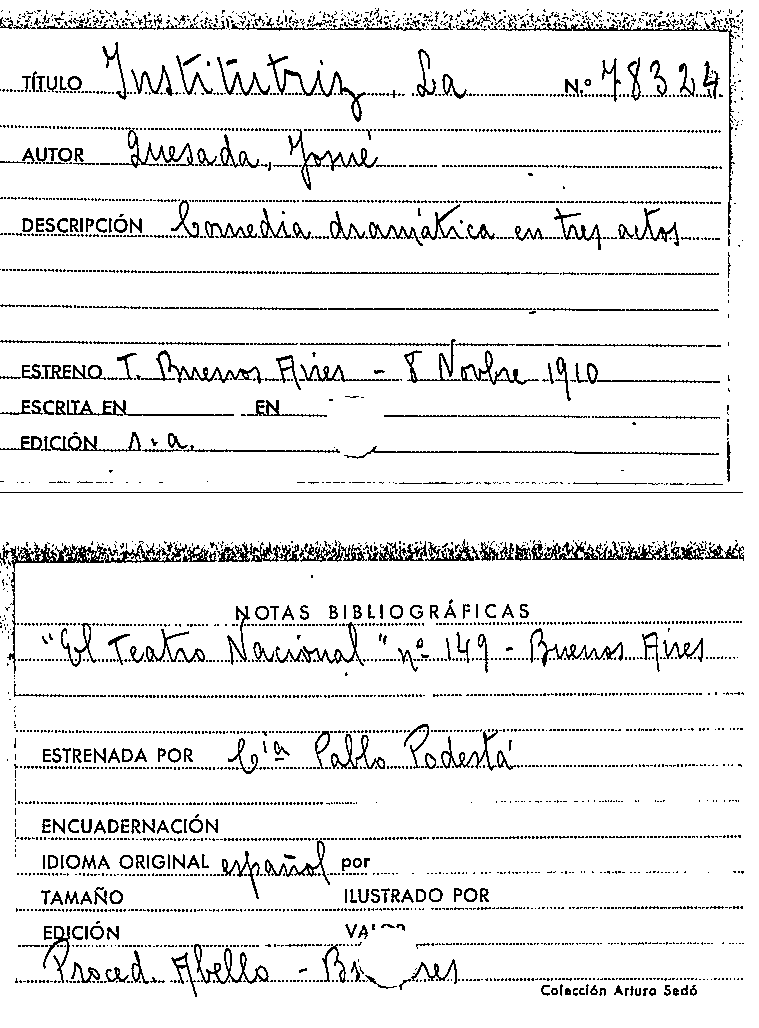 TÍTULO Institutriz, La N.º 78324
AUTOR Quesada, Josué
DESCRIPCIÓN Comedia dramática en tres actos
ESTRENO T. Buenos Aires - 8 Novbre 1910
ESCRITA EN EN
EDICIÓN s.a.
NOTAS BIBLIOGRÁFICAS
"El Teatro Nacional" nº 149 - Buenos Aires
ESTRENADA POR Cía Pablo Podestá
ENCUADERNACIÓN
IDIOMA ORIGINAL español por
TAMAÑO ILUSTRADO POR
EDICIÓN
Proced. Abello -
Colección Arturo Sedó